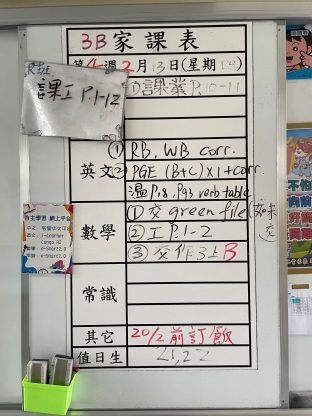 3B家課表
第4週2月13日(星期四)
R班
課工 P.1-12
①課業P.10-11
英文
① RB, WB corr.
② PGE (B+C)×1+corr.
溫P.18, P.93 verb table
數學
① 交 green file (如未交)
② 工 P.1-2
③ 交作3上B
常識
其它
20/2前訂飯
值日生
21,22
自主學習 網上平台